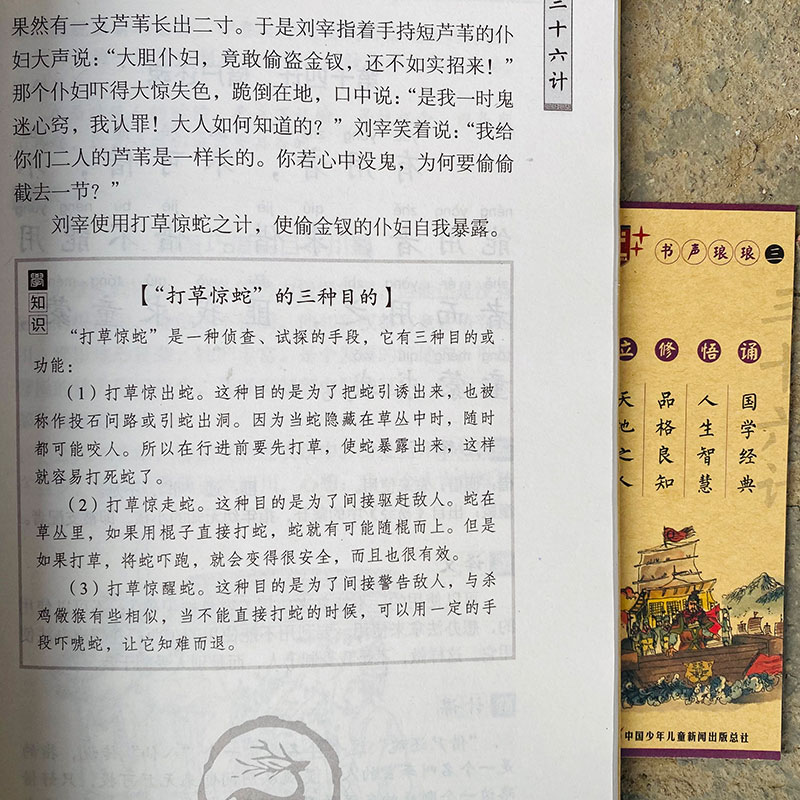 三十六计
果然有一支芦苇长出二寸。于是刘宰指着手持短芦苇的仆
妇大声说：“大胆仆妇，竟敢偷盗金钗，还不如实招来！”
那个仆妇吓得大惊失色，跪倒在地，口中说：“是我一时鬼
迷心窍，我认罪！大人如何知道的？”刘宰笑着说：“我给
你们二人的芦苇是一样长的。你若心中没鬼，为何要偷偷
截去一节？”
刘宰使用打草惊蛇之计，使偷金钗的仆妇自我暴露。
知识
【“打草惊蛇”的三种目的】
“打草惊蛇”是一种侦查、试探的手段，它有三种目的或
功能：
（1）打草惊出蛇。这种目的是为了把蛇引诱出来，也被
称作投石问路或引蛇出洞。因为当蛇隐藏在草丛中时，随时
都可能咬人。所以在行进前要先打草，使蛇暴露出来，这样
就容易打死蛇了。
（2）打草惊走蛇。这种目的是为了间接驱赶敌人。蛇在
草丛里，如果用棍子直接打蛇，蛇就有可能随棍而上。但是
如果打草，将蛇吓跑，就会变得很安全，而且也很有效。
（3）打草惊醒蛇。这种目的是为了间接警告敌人，与杀
鸡儆猴有些相似，当不能直接打蛇的时候，可以用一定的手
段吓唬蛇，让它知难而退。
书声琅琅 三
三十六计
诵 国学经典
悟 人生智慧
修 品格良知
立 天地之人
中国少年儿童新闻出版总社